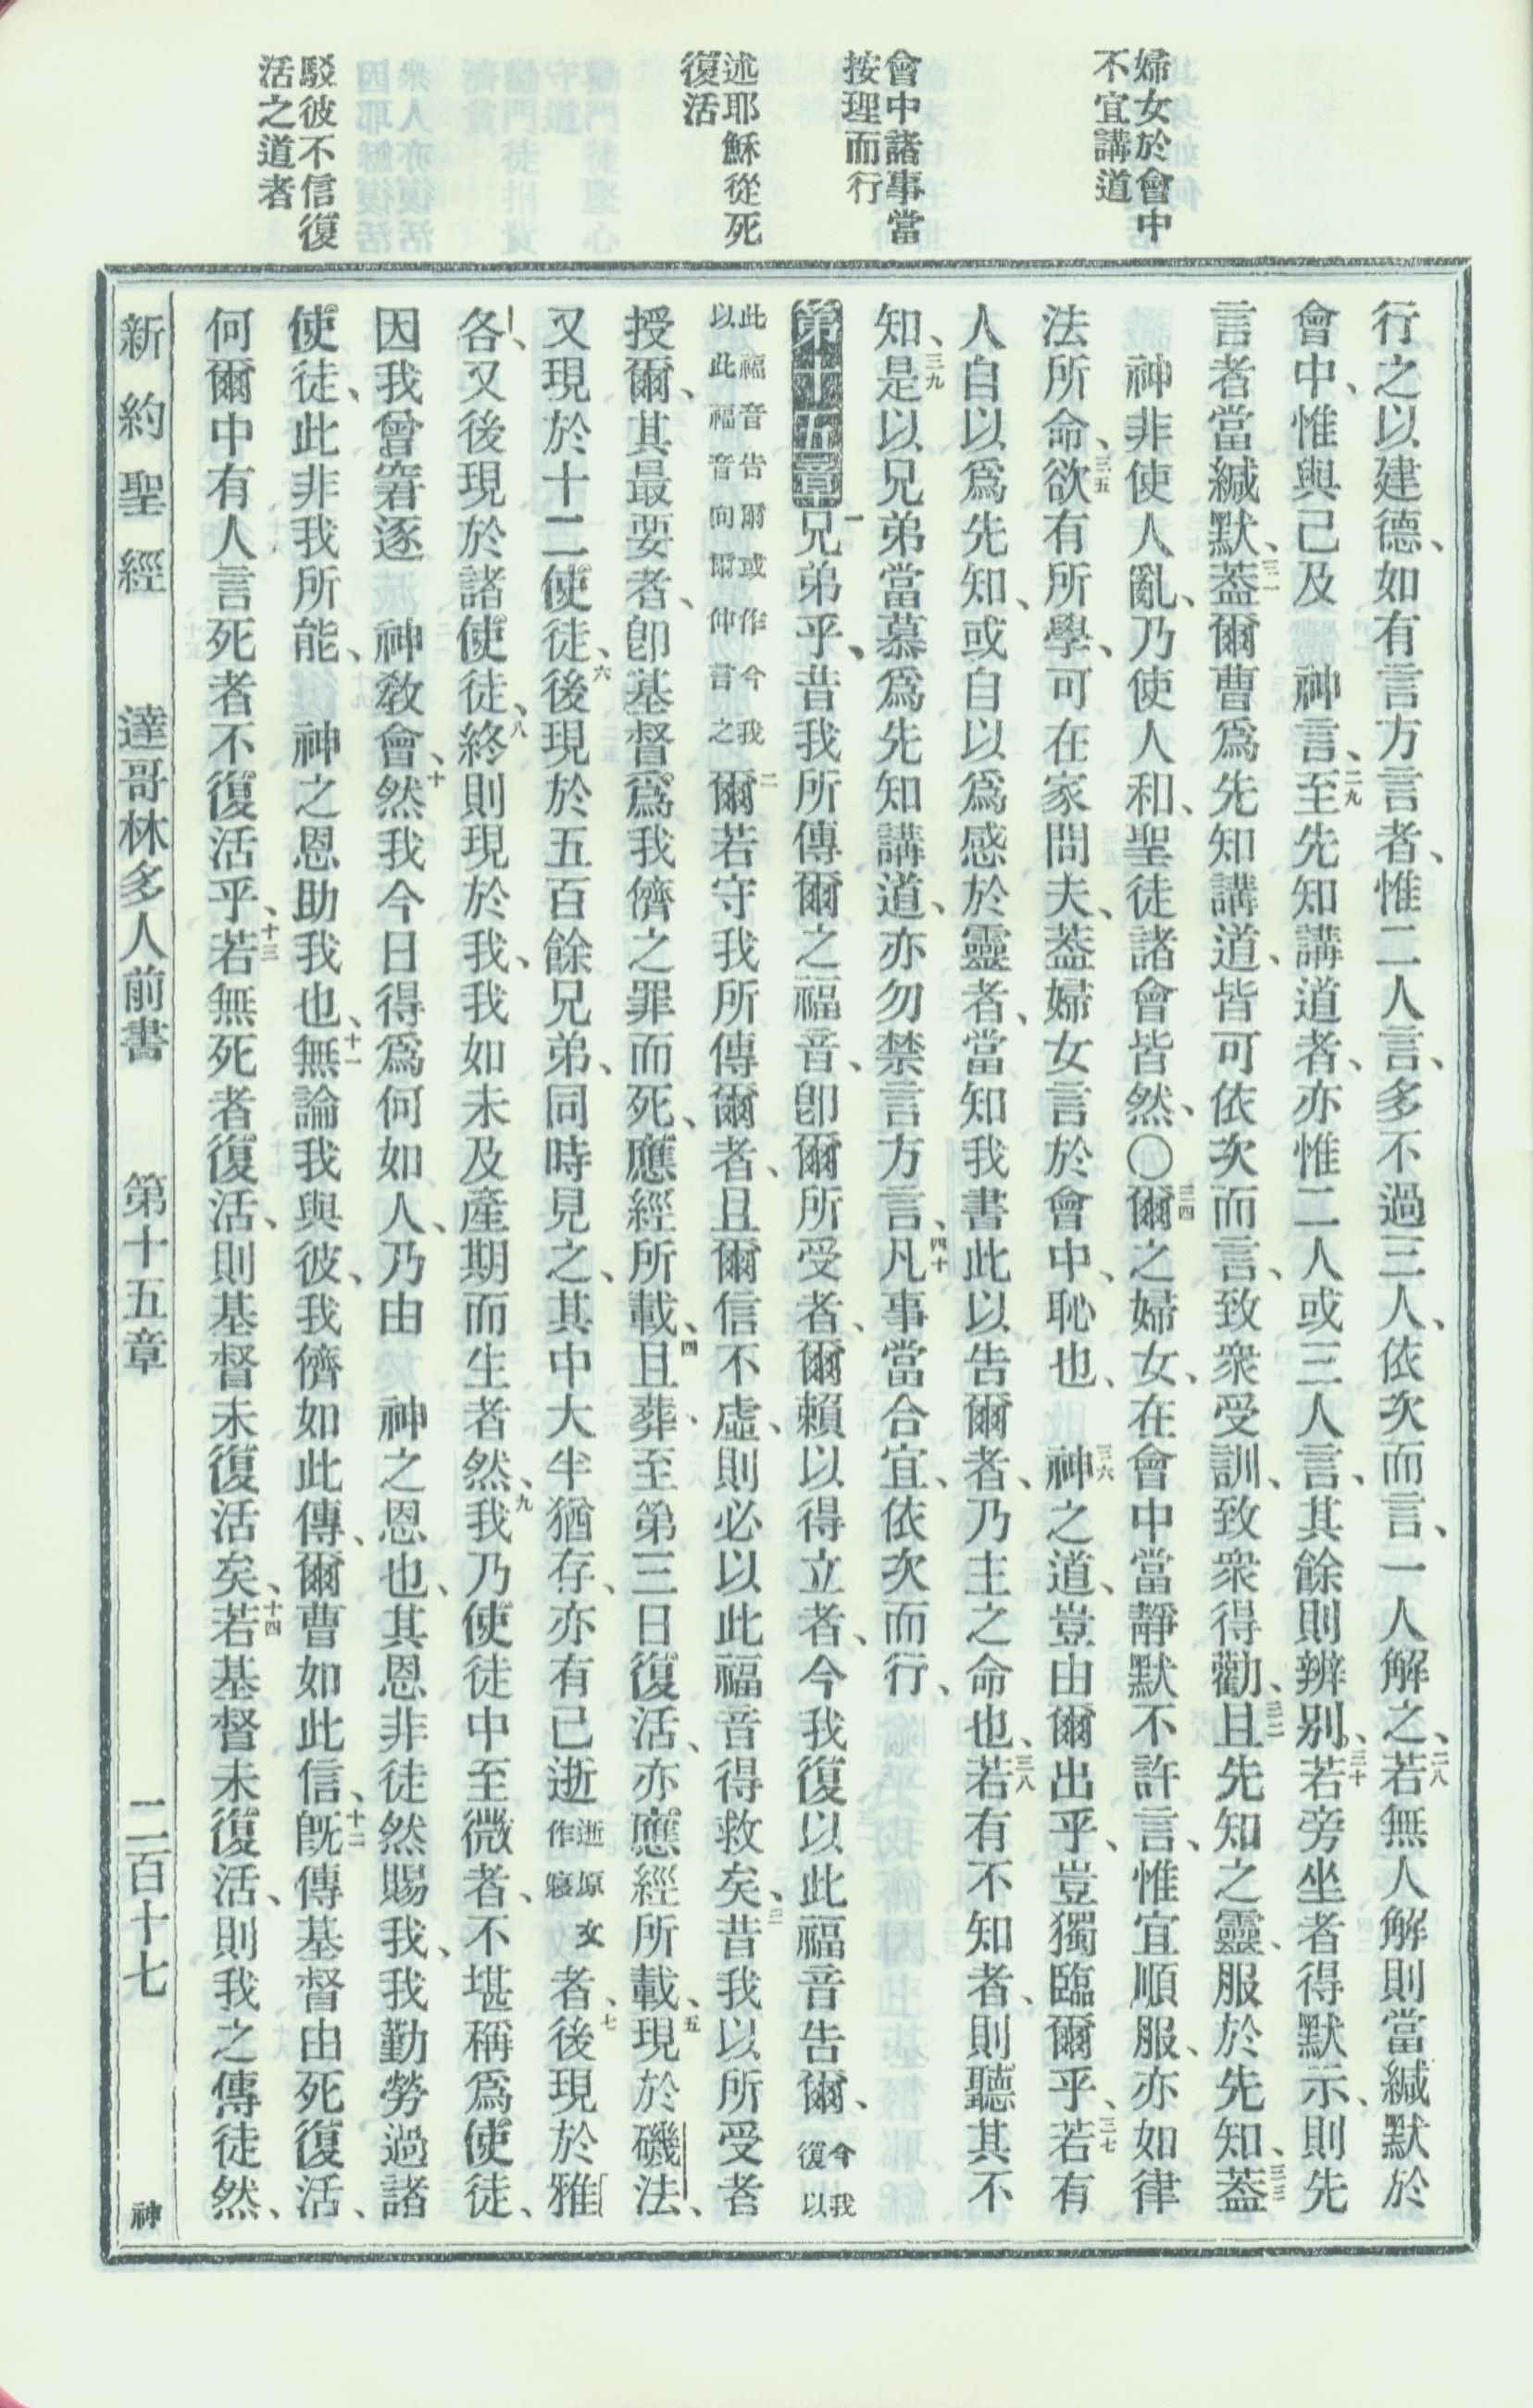 婦女於會中
不宜講道
會中諸事當
按理而行
述耶穌從死
復活
駁彼不信復
活之道者
行之以建德、如有言方言者、惟二人言、多不過三人、依次而言、一人解之、二八若無人解則當緘默於
會中、惟與己及　神言、二九至先知講道者、亦惟二人或三人言、其餘則辨別、三十若旁坐者得默示、則先
言者當緘默、三一葢爾曹爲先知講道、皆可依次而言、致衆受訓、致衆得勸、三二且先知之靈、服於先知、三三葢
　神非使人亂、乃使人和、聖徒諸會皆然、〇三四爾之婦女、在會中當靜默不許言、惟宜順服、亦如律
法所命、三五欲有所學、可在家問夫、葢婦女言於會中、恥也、　三六神之道、豈由爾出乎、豈獨臨爾乎、三七若有
人自以爲先知、或自以爲感於靈者、當知我書此以告爾者、乃主之命也、三八若有不知者、則聽其不
知、三九是以兄弟當慕爲先知講道、亦勿禁言方言、四十凡事當合宜、依次而行、
第十五章一兄弟乎、昔我所傳爾之福音、卽爾所受者、爾賴以得立者、今我復以此福音告爾、今我復以
此福音告爾或作今我以此福音向爾伸言之二爾若守我所傳爾者、且爾信不虛、則必以此福音得救矣、三昔我以所受者
授爾、其最要者、卽基督爲我儕之罪而死、應經所載、四且葬、至第三日復活、亦應經所載、五現於磯法、
又現於十二使徒、六後現於五百餘兄弟、同時見之、其中大半猶存、亦有已逝逝原文作寢者、七後現於雅
各、又後現於諸使徒、八終則現於我、我如未及產期而生者然、九我乃使徒中至微者、不堪稱爲使徒、
因我曾窘逐　神敎會、十然我今日得爲何如人、乃由　神之恩也、其恩非徒然賜我、我勤勞過諸
使徒、此非我所能、　神之恩助我也、十一無論我與彼、我儕如此傳、爾曹如此信、十二旣傳基督由死復活、
何爾中有人言死者不復活乎、十三若無死者復活、則基督未復活矣、十四若基督未復活、則我之傳徒然、
新約聖經　達哥林多人前書　第十五章　二百十七　神